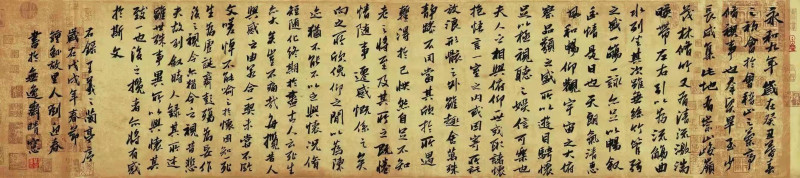 永和九年歲在癸丑暮春
之初會于會稽山陰之蘭亭
脩禊事也羣賢畢至少
長咸集此地有崇山峻領
茂林脩竹又有清流激湍
映帶左右引以為流觴曲
水列坐其次雖無絲竹管弦
之盛一觴一詠亦足以暢敘
幽情是日也天朗氣清惠
風和暢仰觀宇宙之大俯
察品類之盛所以遊目騁懷
足以極視聽之娛信可樂也
夫人之相與俯仰一世或取諸懷
抱悟言一室之內或因寄所託
放浪形骸之外雖趣舍萬殊
靜躁不同當其欣於所遇
暫得於己快然自足不知
老之將至及其所之既惓
情隨事遷感慨係之矣
向之所欣俛仰之間以為陳
迹猶不能不以之興懷況脩
短隨化終期於盡古人云死生
亦大矣豈不痛哉每攬昔人
興感之由若合一契未嘗不臨
文嗟悼不能喻之於懷固知一死
生為虛誕齊彭殤為妄作
後之視今亦由今之視昔悲
夫故列敘時人錄其所述
雖世殊事異所以興懷其
致一也後之攬者亦將有感
於斯文
右錄王羲之蘭亭序
歲在戊戌年春節
鍾馗故里人劉迎春
書於無逸齋晴窗